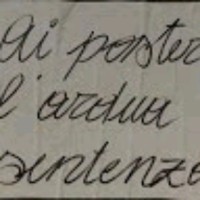 Ai poster
l'ardua
sentenza